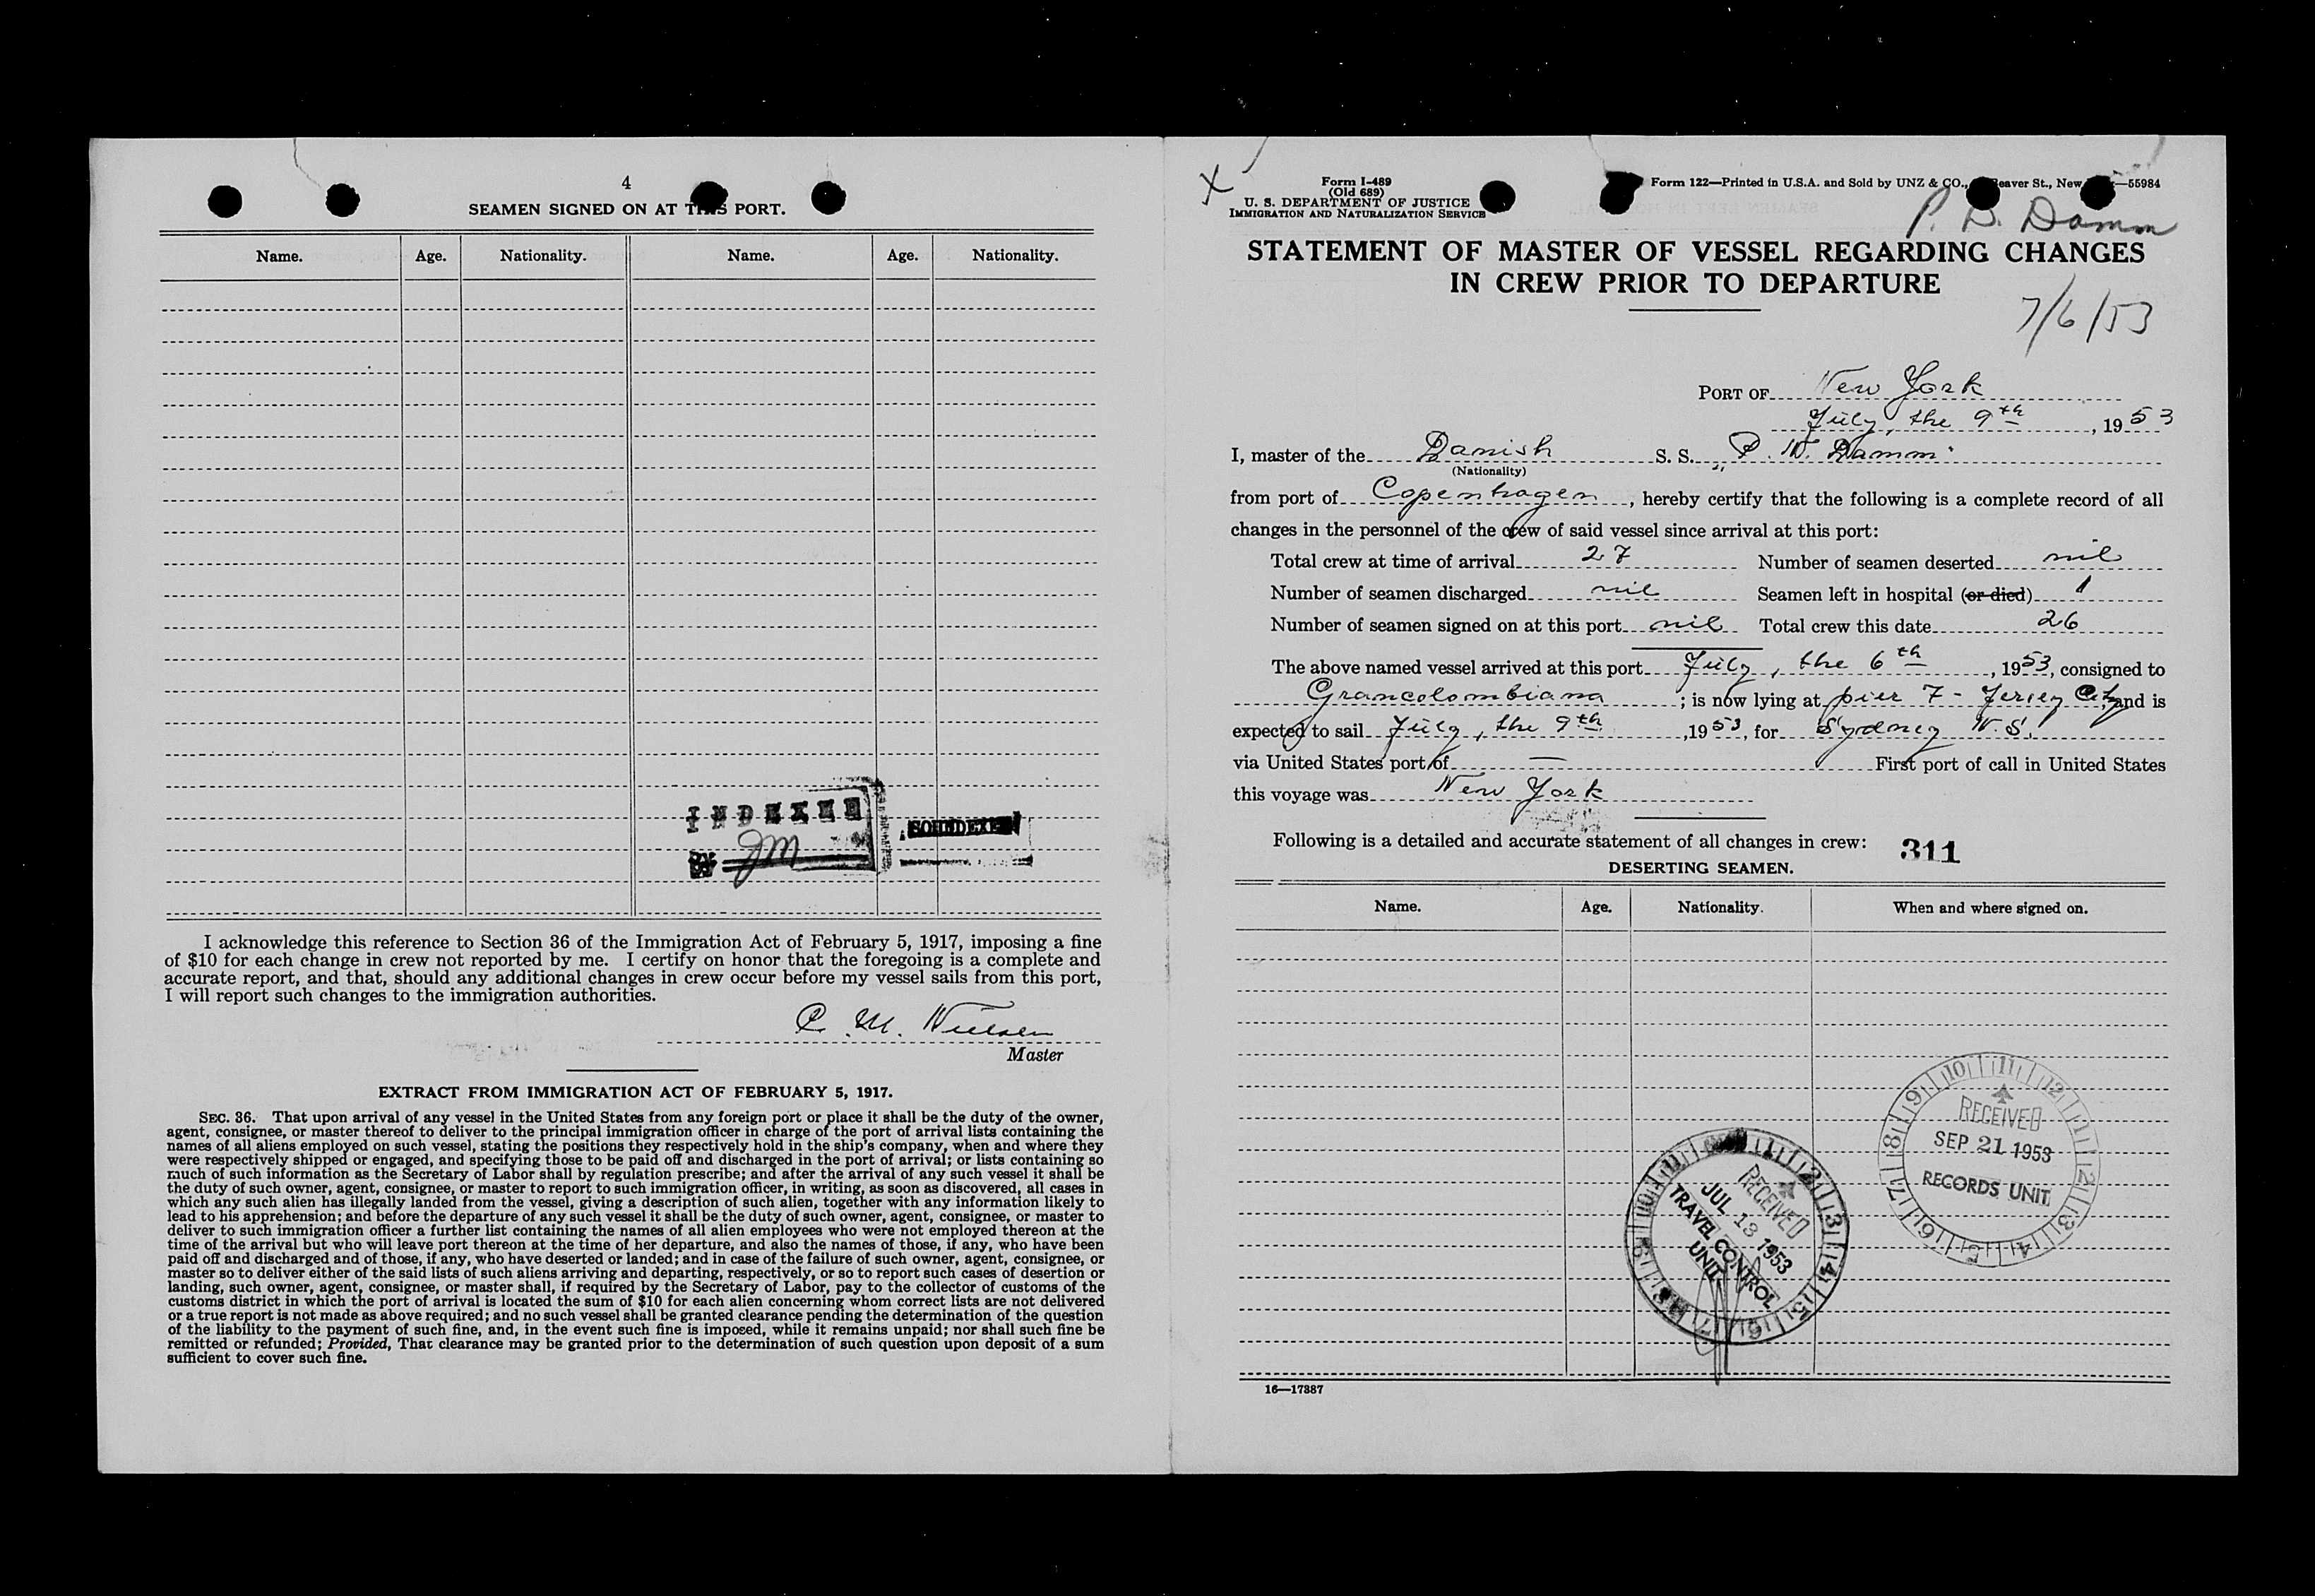 4
SEAMEN SIGNED ON AT THIS PORT.
Name. Age. Nationality. Name. Age. Nationality.
INDEXED
BY JM
SOUNDEXED
I acknowledge this reference to Section 36 of the Immigration Act of February 5, 1917, imposing a fine
of $10 for each change in crew not reported by me. I certify on honor that the foregoing is a complete and
accurate report, and that, should any additional changes in crew occur before my vessel sails from this port,
I will report such changes to the immigration authorities.
C. M. Nielsen
Master
EXTRACT FROM IMMIGRATION ACT OF FEBRUARY 5, 1917.
SEC. 36. That upon arrival of any vessel in the United States from any foreign port or place it shall be the duty of the owner,
agent, consignee, or master thereof to deliver to the principal immigration officer in charge of the port of arrival lists containing the
names of all aliens employed on such vessel, stating the positions they respectively hold in the ship's company, when and where they
were respectively shipped or engaged, and specifying those to be paid off and discharged in the port of arrival; or lists containing so
much of such information as the Secretary of Labor shall by regulation prescribe; and after the arrival of any such vessel it shall be
the duty of such owner, agent, consignee, or master to report to such immigration officer, in writing, as soon as discovered, all cases in
which any such alien has illegally landed from the vessel, giving a description of such alien, together with any information likely to
lead to his apprehension; and before the departure of any such vessel it shall be the duty of such owner, agent, consignee, or master to
deliver to such immigration officer a further list containing the names of all alien employees who were not employed thereon at the
time of the arrival but who will leave port thereon at the time of her departure, and also the names of those, if any, who have been
paid off and discharged and of those, if any, who have deserted or landed; and in case of the failure of such owner, agent, consignee, or
master so to deliver either of the said lists of such aliens arriving and departing, respectively, or so to report such cases of desertion or
landing, such owner, agent, consignee, or master shall, if required by the Secretary of Labor, pay to the collector of customs of the
customs district in which the port of arrival is located the sum of $10 for each alien concerning whom correct lists are not delivered
or a true report is not made as above required; and no such vessel shall be granted clearance pending the determination of the question
of the liability to the payment of such fine, and, in the event such fine is imposed, while it remains unpaid; nor shall such fine be
remitted or refunded; Provided, That clearance may be granted prior to the determination of such question upon deposit of a sum
sufficient to cover such fine.
X
Form I-489
(Old 689)
U. S. DEPARTMENT OF JUSTICE
IMMIGRATION AND NATURALIZATION SERVICE
Form 122—Printed in U.S.A. and Sold by UNZ & CO., Beaver St., New —55984
P. D. Damm
STATEMENT OF MASTER OF VESSEL REGARDING CHANGES
IN CREW PRIOR TO DEPARTURE
7/6/53
PORT OF New York
July, the 9th, 1953
I, master of the Danish S. S. "P. W. Damm"
(Nationality)
from port of Copenhagen, hereby certify that the following is a complete record of all
changes in the personnel of the crew of said vessel since arrival at this port:
Total crew at time of arrival 27 Number of seamen deserted nil
Number of seamen discharged nil Seamen left in hospital (or died) 1
Number of seamen signed on at this port nil Total crew this date 26
The above named vessel arrived at this port July, the 6th, 1953, consigned to
Grancolombiana; is now lying at pier 7 - Jersey City and is
expected to sail July, the 9th, 1953, for Sydney N. S.
via United States port of — First port of call in United States
this voyage was New York
Following is a detailed and accurate statement of all changes in crew: 311
DESERTING SEAMEN.
Name. Age. Nationality. When and where signed on.
10 11 12 1 2 3 4 5 6 7 8 9
RECEIVED
SEP 21 1953
RECORDS UNIT
11 1 2 3 4 5 6 7 8 9 10
RECEIVED
JUL 13 1953
TRAVEL CONTROL
UNIT
16—17887